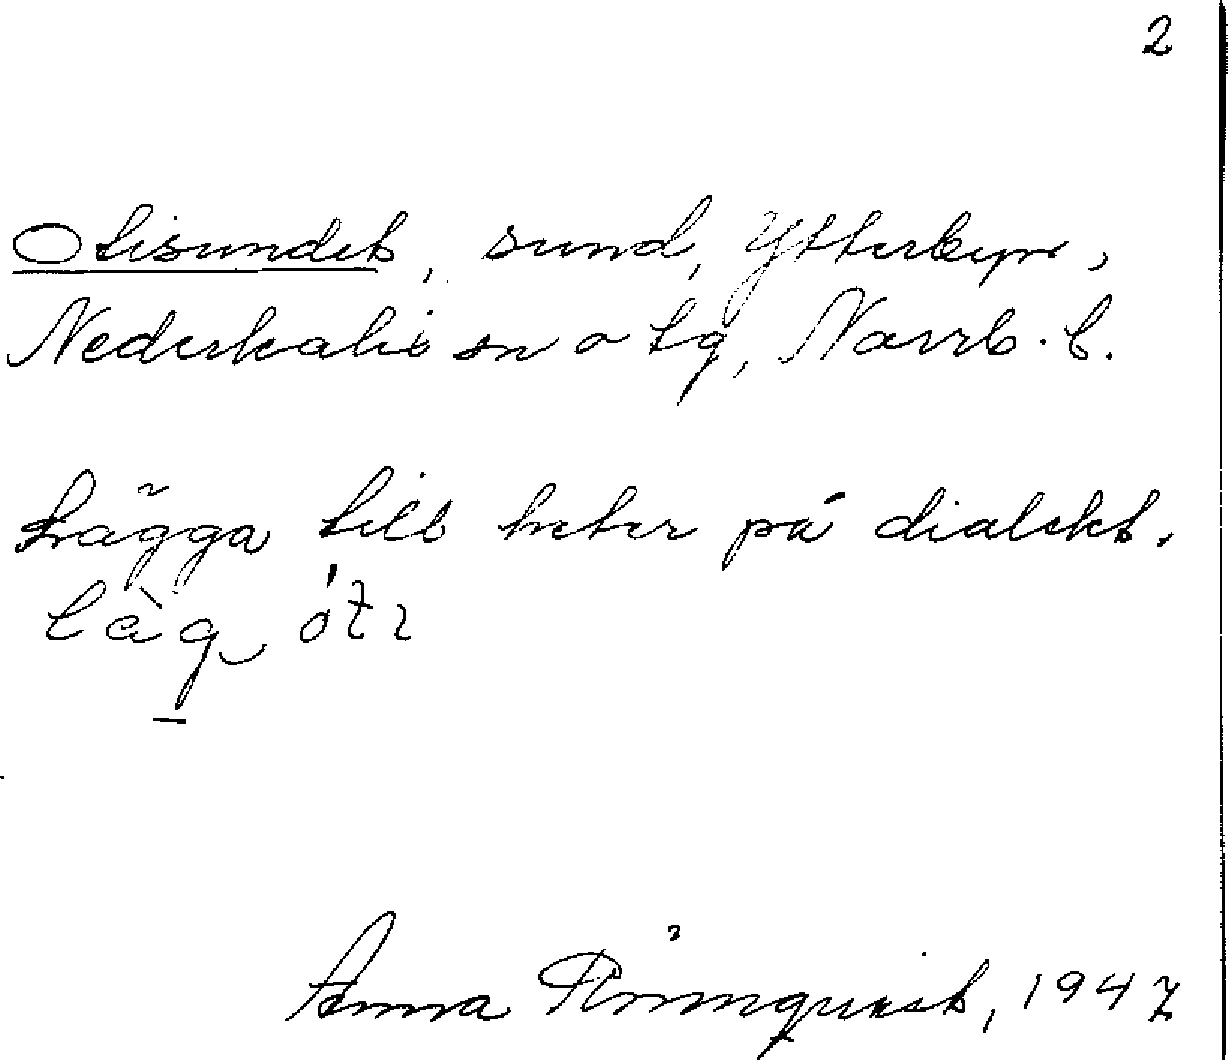 2
Otisundet, sund, Ytterbyn,
Nederkalix sn o tg, Norrb. l.
Lägga till heter på dialekt.
làg ótı
Anna Rönnqvist, 1947